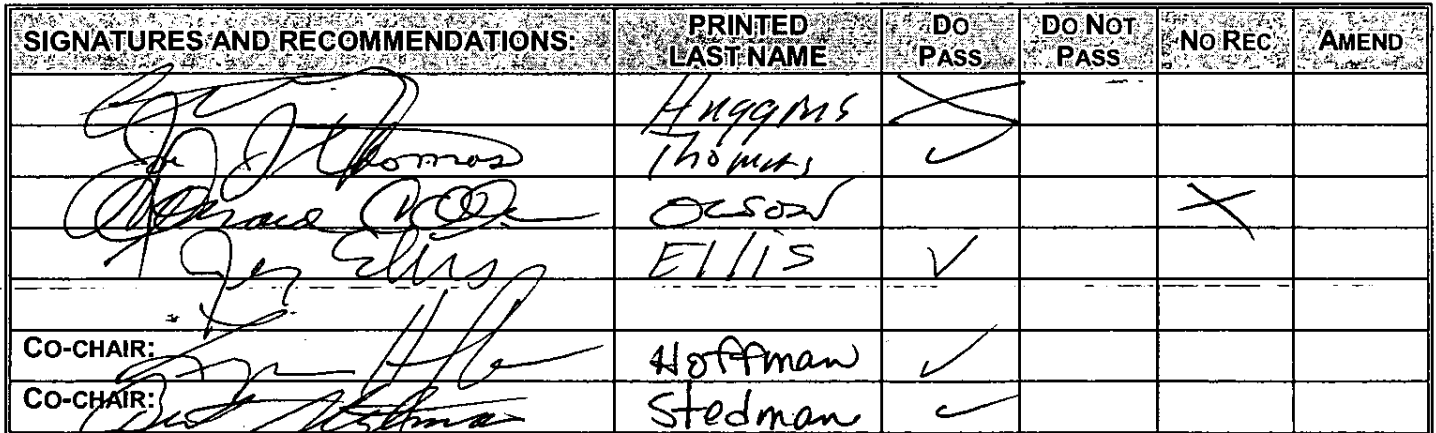 SIGNATURES AND RECOMMENDATIONS: PRINTED LAST NAME DO PASS DO NOT PASS NO REC AMEND
Huggins X
Thomas Thomas ✓
Olson X
Ellis Ellis ✓
CO-CHAIR: Hoffman ✓
CO-CHAIR: Stedman ✓